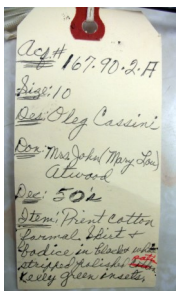 Acq.# 167.90.2.A
Size: 10
Des: Oleg Cassini
Don: Mrs John (Mary Lou)
Atwood
Dec: 50's
Item: Print cotton
formal. Skirt &
bodice in black & wht
stripped
Kelly green insets